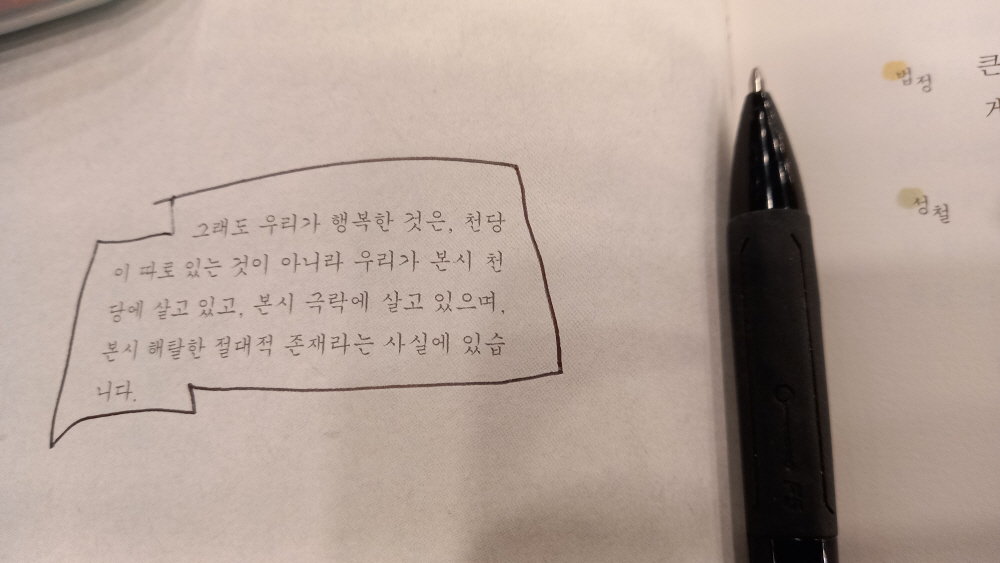 그래도 우리가 행복한 것은, 천당
이 따로 있는 것이 아니라 우리가 본시 천
당에 살고 있고, 본시 극락에 살고 있으며,
본시 해탈한 절대적 존재라는 사실에 있습
니다.
법정
큰
성철